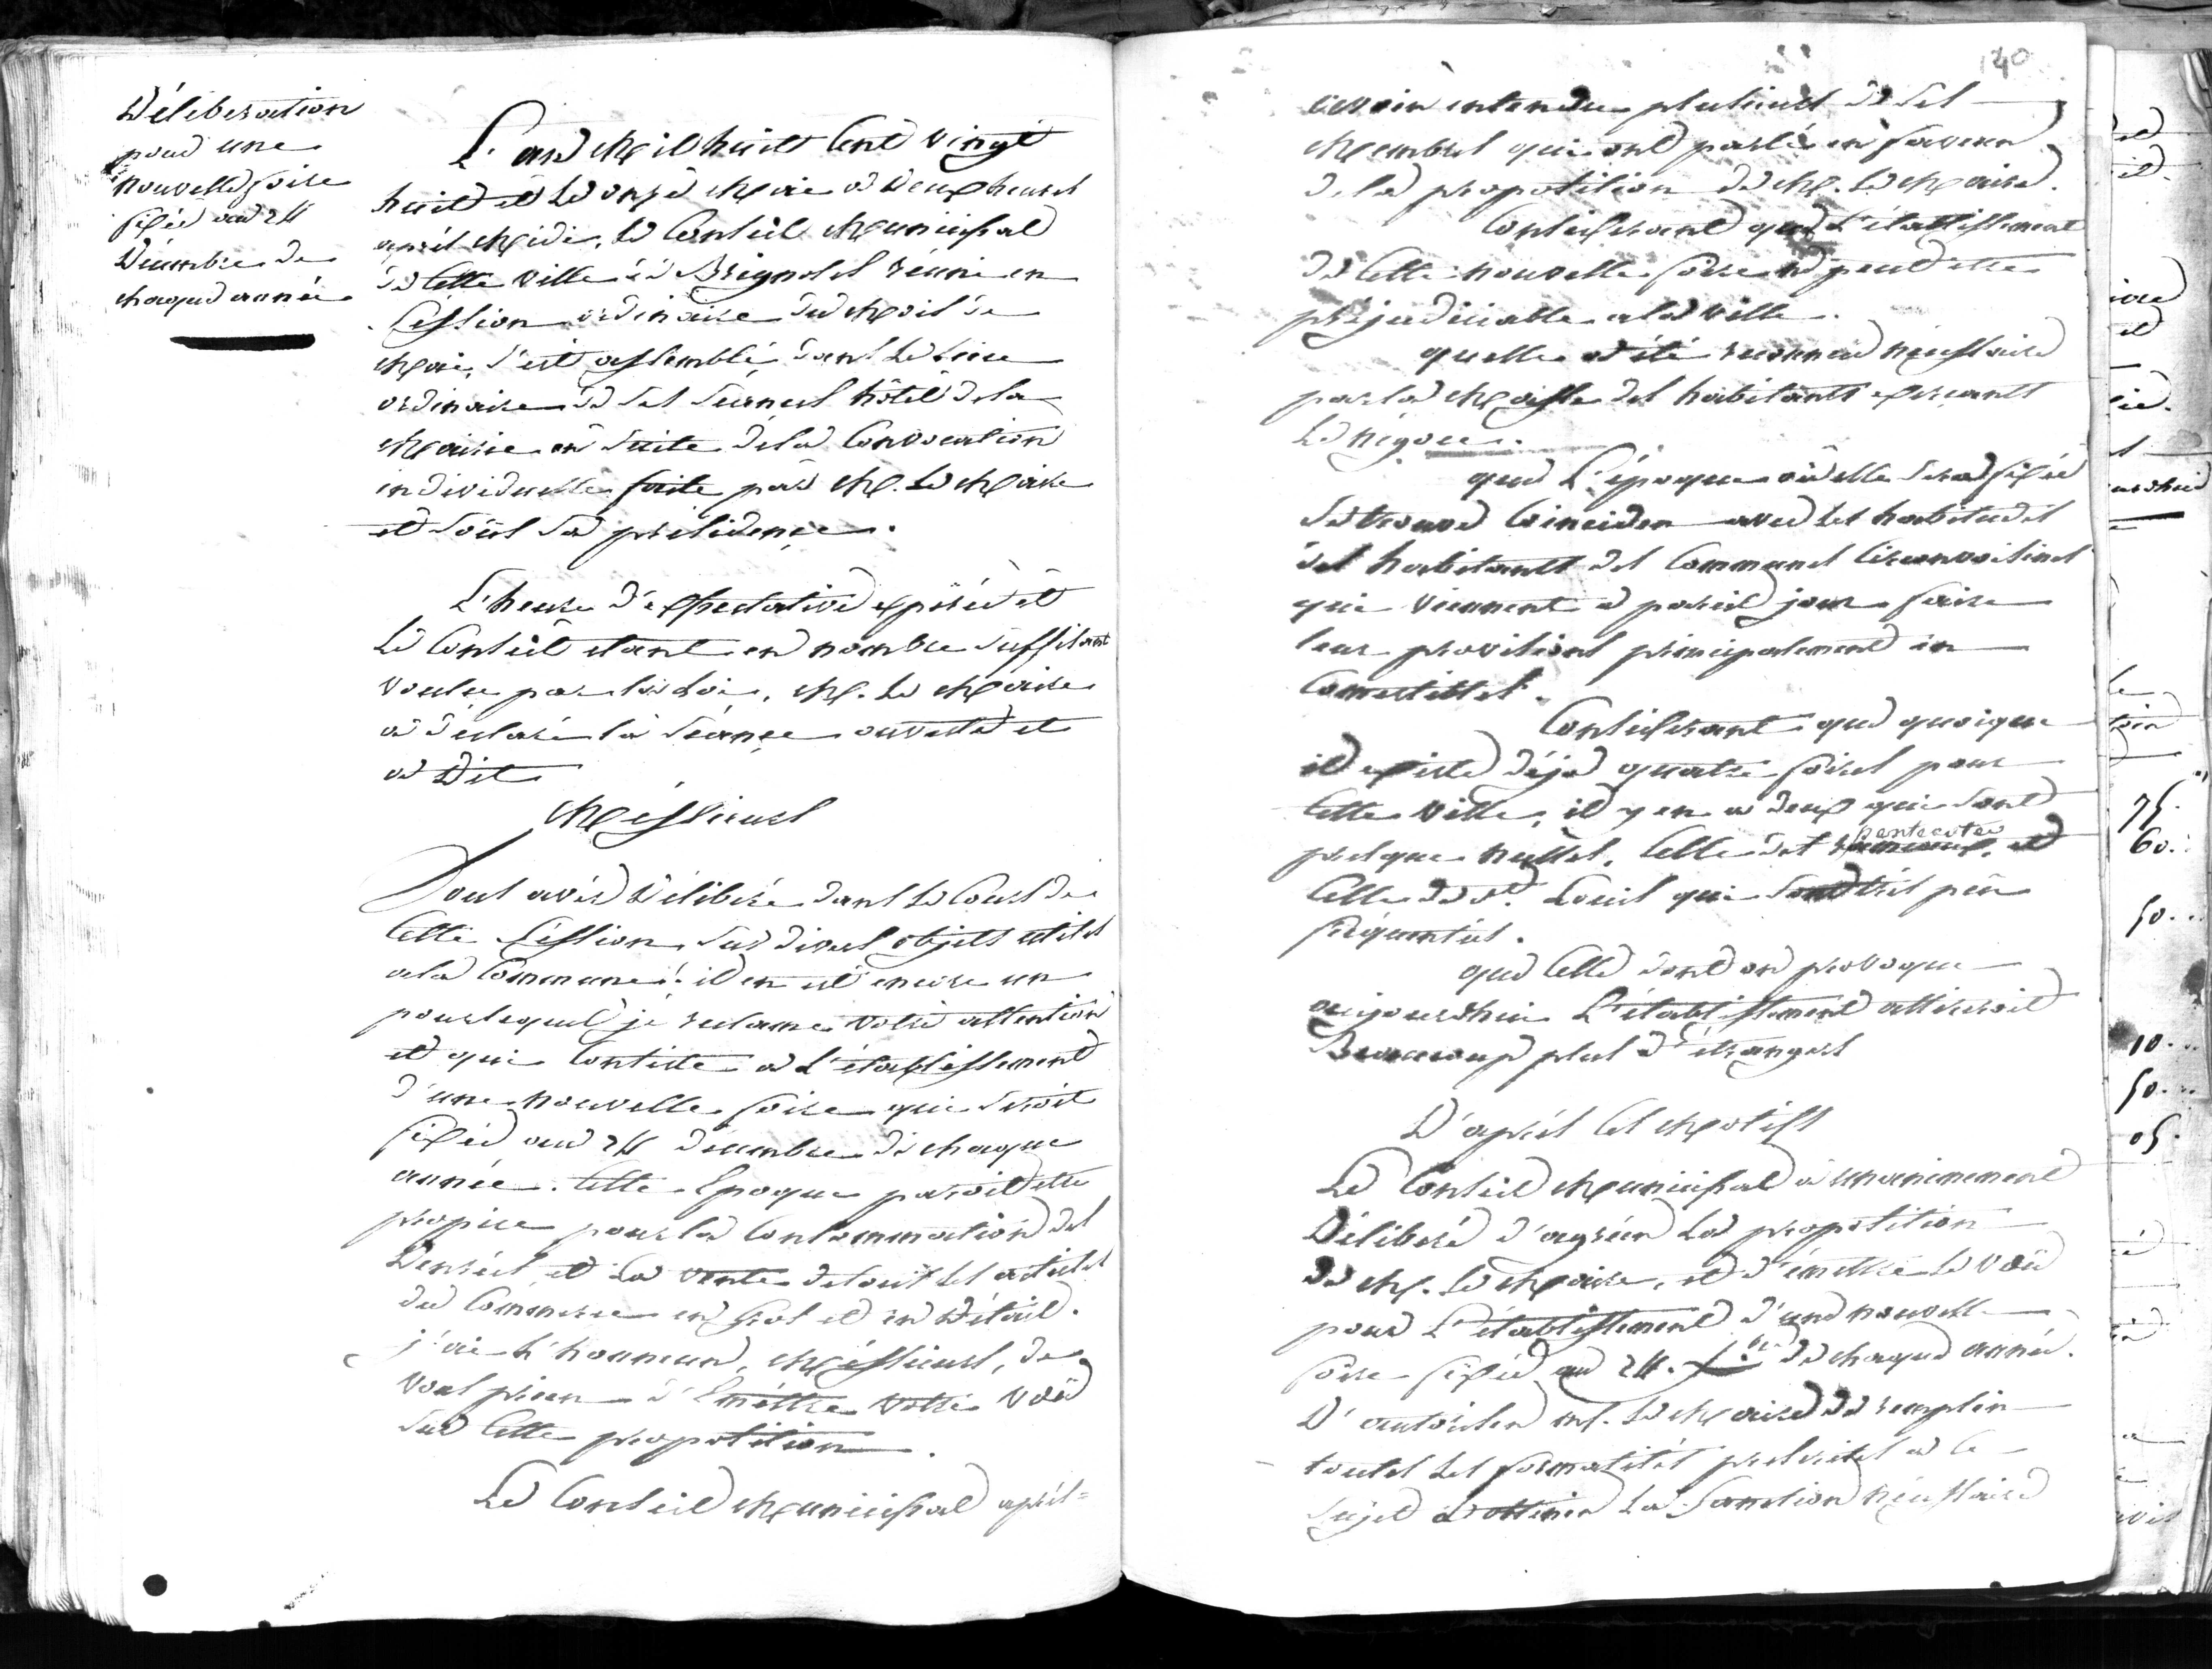 Délibération
pour une
nouvelle foire
fixée au 24
Décembre de
chaque année
L'an Mil huit Cent vingt
huit et le onze Mai à Deux heures
après Midi, le Conseil Municipal
de Cette ville de Brignoles réuni en
Session ordinaire du Mois de
Mai, s'est assemblé dans le lieu
ordinaire de ses séances hôtel de la
Mairie en suite de la Convocation
individuelle faite par M. le Maire
et sous sa présidence.
L'heure d'expectative expirée et
le Conseil étant en nombre suffisant
voulu par la Loi, M. le Maire
a déclaré la séance ouverte et
a Dit
Messieurs
Vous avés Délibéré dans le Cours de
Cette Session sur divers objets utiles
a la Commune: il en est encore un
pour lequel je reclame votre attention
et qui Consiste a L'établissement
d'une nouvelle foire qui seroit
fixée au 24 décembre de chaque
année. Cette Epoque paroit etre
propice pour la Consommation des
Denrées et la vente de tous les articles
du Commerce en gros et en Détail.
j'ai l'honneur, Messieurs, de
vous prier d'Emettre votre vœu
sur Cette proposition.
Le Conseil Municipal après=
140
avoir entendu plusieurs de ses
Membres qui ont parlé en faveur
de la proposition de M. le Maire.
Considerant que L'établissement
de Cette nouvelle foire ne peut être
préjudiciable a la ville.
quelle a été reconnue nécessaire
par la Masse des habitants exerçants
le négoce.
que L'époque où elle sera fixée
se trouve Coincider avec les habitudes
des habitants des Communes Circonvoisines
qui viennent à pareil jour faire
leur provisions principalement en
Comestibles.
Considerant que quoique
il existe déja quatre foires pour
Cette ville, il y en a deux qui sont
presque nulles, Celle des rameaux, et
pentecote
Celle de St. Louis qui sont très peu
fréquentées.
que Celle dont on provoque
aujourdhui L'établissement attireroit
Beaucoup plus d'étrangers
D'après Ces Motifs
Le Conseil Municipal a unanimement
Délibéré d'agréer la proposition
de M. le Maire, et d'émettre le vœu
pour L'établissement d'une nouvelle
foire fixée au 24. Xbre de chaque année.
D'autoriser M. le Maire de remplir
toutes les formalités prescrites a Ce
sujet d'obtenir la Sanction nécessaire